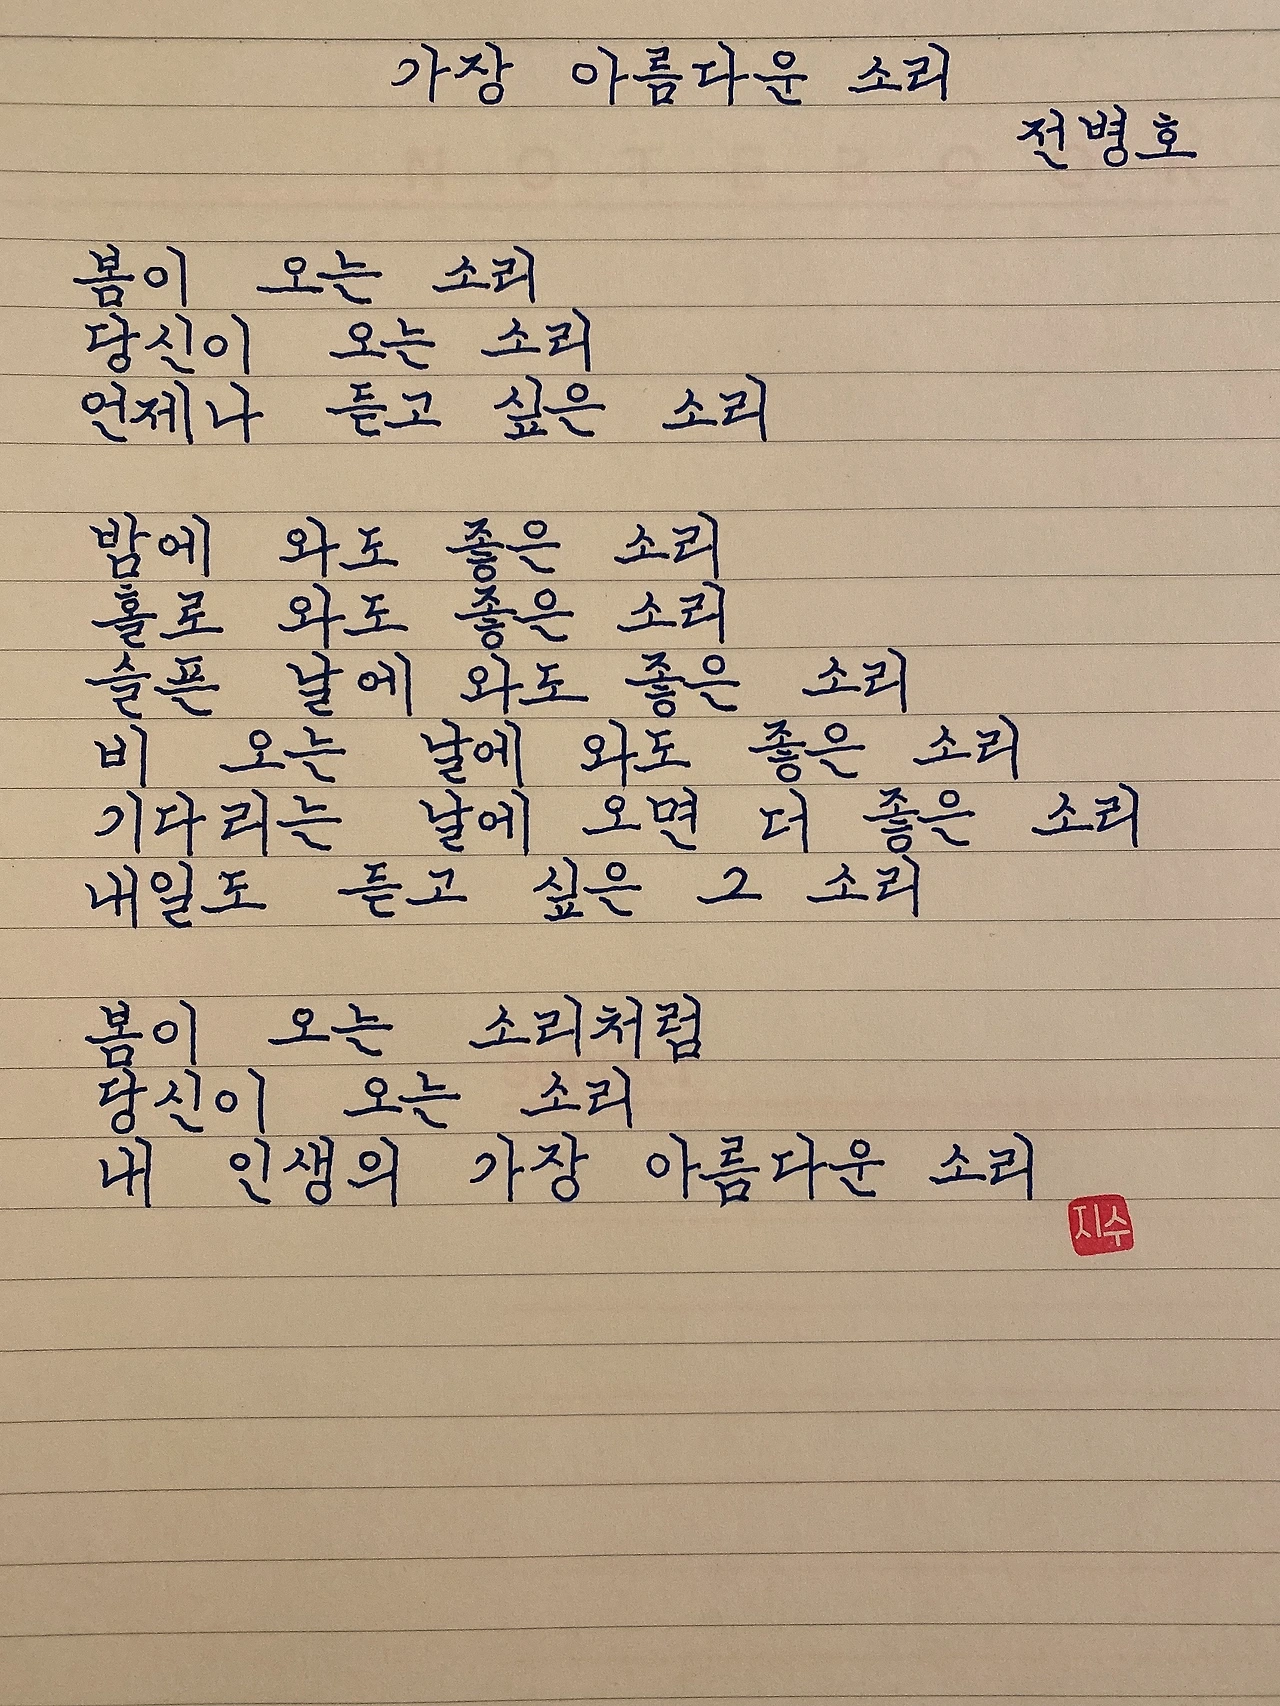 가장 아름다운 소리
전병호
봄이 오는 소리
당신이 오는 소리
언제나 듣고 싶은 소리
밤에 와도 좋은 소리
홀로 와도 좋은 소리
슬픈 날에 와도 좋은 소리
비 오는 날에 와도 좋은 소리
기다리는 날에 오면 더 좋은 소리
내일도 듣고 싶은 그 소리
봄이 오는 소리처럼
당신이 오는 소리
내 인생의 가장 아름다운 소리
지수